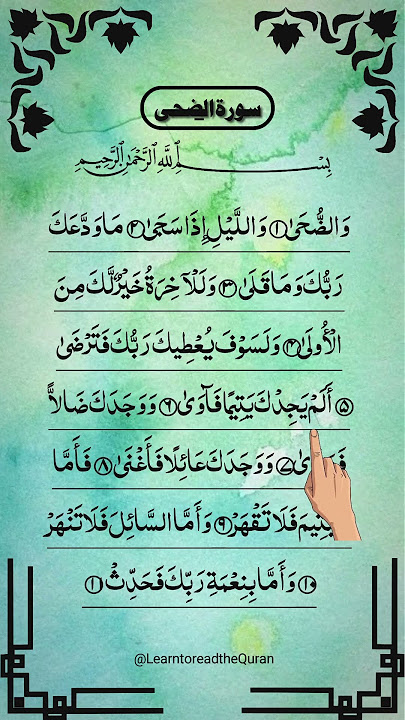 سورة الضحى
بِسْمِ ٱللَّهِ ٱلرَّحْمَٰنِ ٱلرَّحِيمِ
وَالضُّحَىٰ ١ وَاللَّيْلِ إِذَا سَجَىٰ ٢ مَا وَدَّعَكَ
رَبُّكَ وَمَا قَلَىٰ ٣ وَلَلْآخِرَةُ خَيْرٌ لَّكَ مِنَ
الْأُولَىٰ ٤ وَلَسَوْفَ يُعْطِيكَ رَبُّكَ فَتَرْضَىٰ
٥ أَلَمْ يَجِدْكَ يَتِيمًا فَآوَىٰ ٦ وَوَجَدَكَ ضَالًّا
٧ وَوَجَدَكَ عَائِلًا فَأَغْنَىٰ ٨ فَأَمَّا
فَلَا تَقْهَرْ ٩ وَأَمَّا السَّائِلَ فَلَا تَنْهَرْ
١٠ وَأَمَّا بِنِعْمَةِ رَبِّكَ فَحَدِّثْ ١
@LearntoreadtheQuran